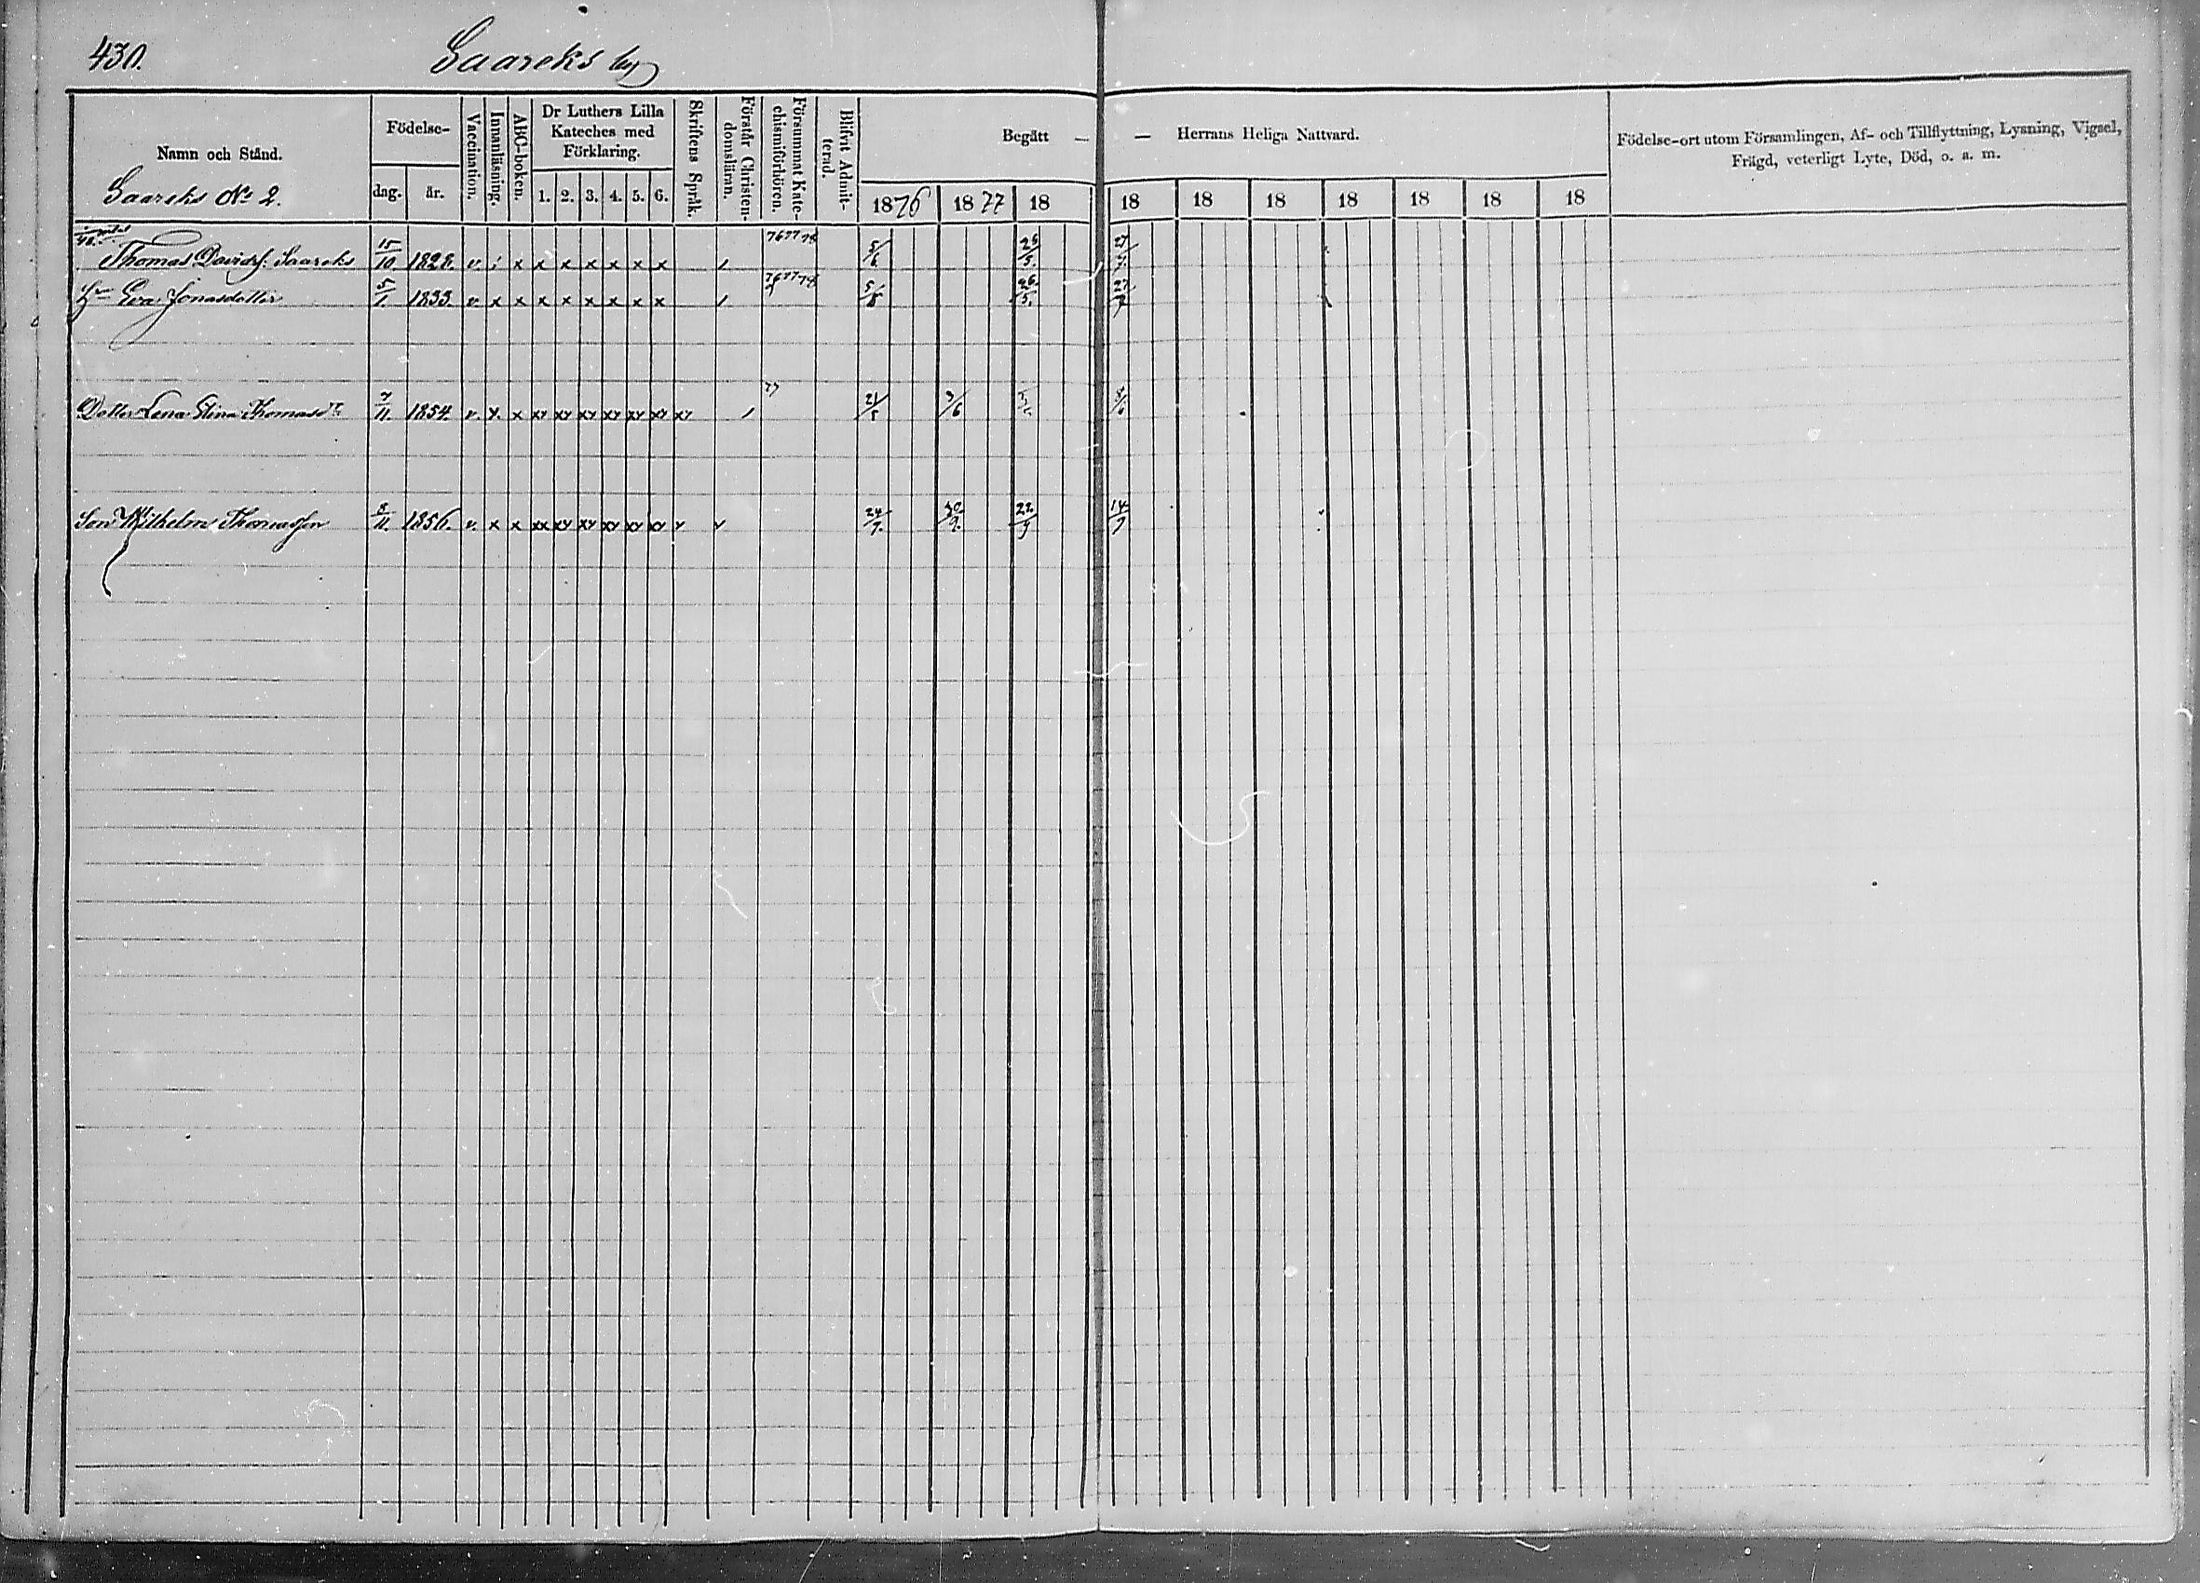 430.
Saareks by
Namn och Stånd.
Födelse-
dag.
år.
Vaccination.
Innanläsning.
ABC-boken.
Dr Luthers Lilla
Kateches med
Förklaring.
1. 2. 3. 4. 5. 6.
Skriftens Språk.
Förstår Christen-
domsläran.
Försummat Kate-
chismiförhören.
Blifvit Admit-
terad.
Begått —
— Herrans Heliga Nattvard.
1876 1877 18
18 18 18 18 18 18 18
Födelse-ort utom Församlingen, Af- och Tillflyttning, Lysning, Vigsel,
Frägd, veterligt Lyte, Död, o. a. m.
Saareks No 2.
Thomas Davidss. Saareks 15/10 1828. v. i x x x x x x x 76 77 78 5/6 26/5. 27/7.
Hu Eva Jonasdotter 5/1 1833. v. x x x x x x x x 76 77 78 5/6 26/5. 27/7
Dotter Lena Stina Thomasdr 7/11. 1854. v. x. x xy xy xy xy xy xy xy 77 21/5 3/6
Son Wilhelm Thomasson 8/11. 1856. v. x x xx xy xy xy xy xy y 24/7. 30/9. 22/9 14/9